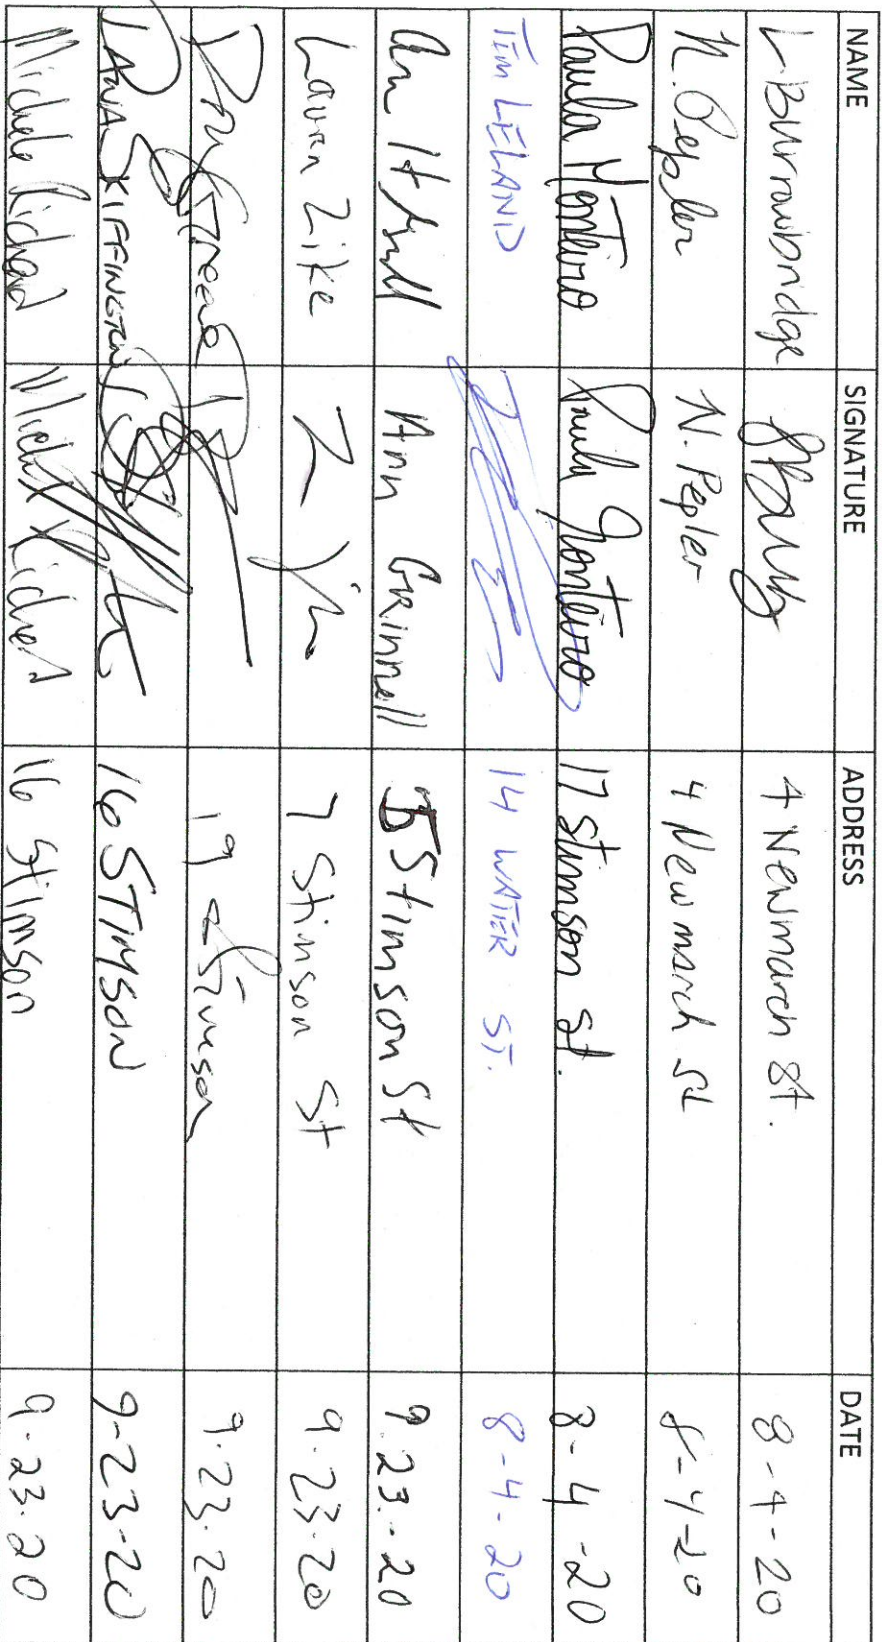 NAME SIGNATURE ADDRESS DATE
L Burrowbridge 4 Newmarch St. 8-4-20
N. Pepler N. Pepler 4 Newmarch St 8-4-20
Paula Monteiro Paula Monteiro 17 Stimson St. 8-4-20
TIM LELAND 14 WATER ST. 8-4-20
Ann Grinnell 5 Stimson St 9.23.-20
Lauren Zike 7 Stinson St 9.23.20
19 Stimson 9.23.20
DANA SKIFFINGTON 16 STIMSON 9-23-20
Michele Richard Michele Richard 16 Stimson 9.23.20